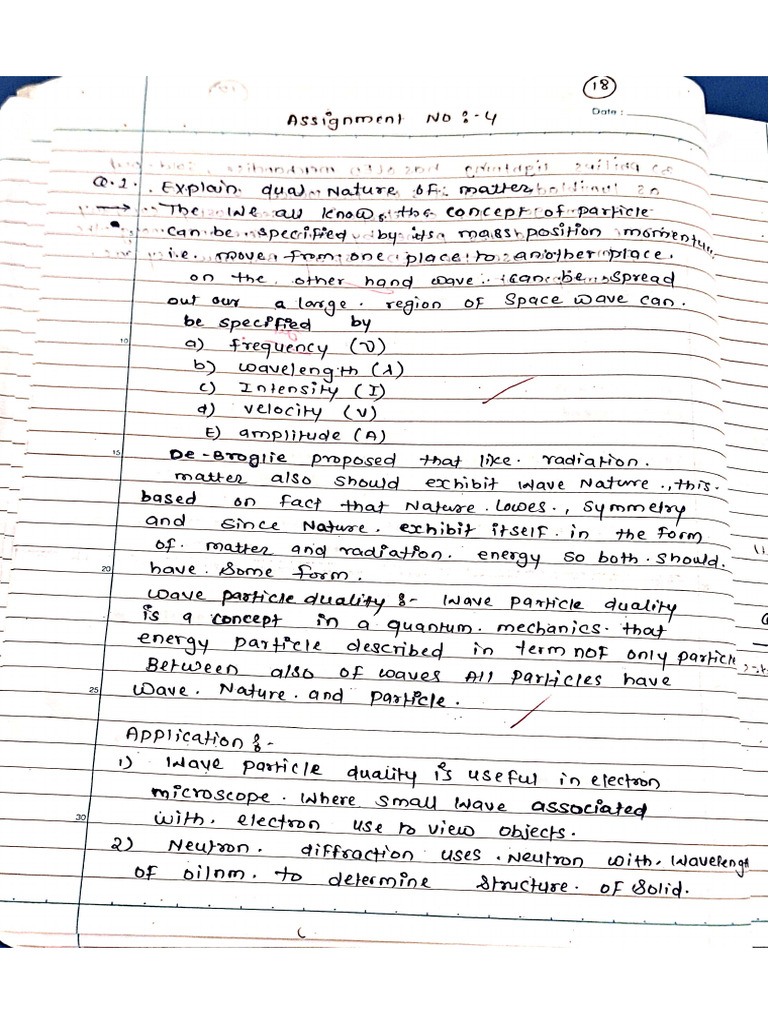 18
Assignment No :- 4
Date :
Q.1. Explain dual Nature of matter
→ The We all know the concept of particle
can be specified by its mass position momentum
i.e. move from one place to another place.
on the other hand wave can be spread
out our a large region of space wave can.
be specified by
10 a) frequency (ν)
b) wavelength (λ)
c) Intensity (I)
d) velocity (V)
E) amplitude (A)
15 De-Broglie proposed that like. radiation.
matter also should exhibit wave Nature., this.
based on fact that Nature. Lowes., symmetry
and since Nature. exhibit itself. in the form
of. matter and radiation. energy so both. should.
20 have. some form.
wave particle duality :- Wave particle duality
is a concept in a quantum. mechanics. that
energy particle described in term not only particle
Between also of waves All particles have
25 wave. Nature. and particle.
Application :-
1) Wave particle duality is useful in electron
microscope. where small wave associated
30 with. electron use to view objects.
2) Neutron. diffraction uses. Neutron with. wavelengt
of 0.1nm. to determine structure. of solid.